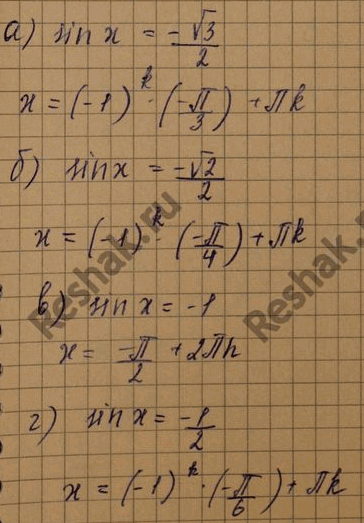 а) sin x = -√3/2
x = (-1)^k · (-π/3) + πk
б) sin x = -√2/2
x = (-1)^k · (-π/4) + πk
в) sin x = -1
x = -π/2 + 2πn
г) sin x = -1/2
x = (-1)^k · (-π/6) + πk
Reshak.ru
Reshak.ru